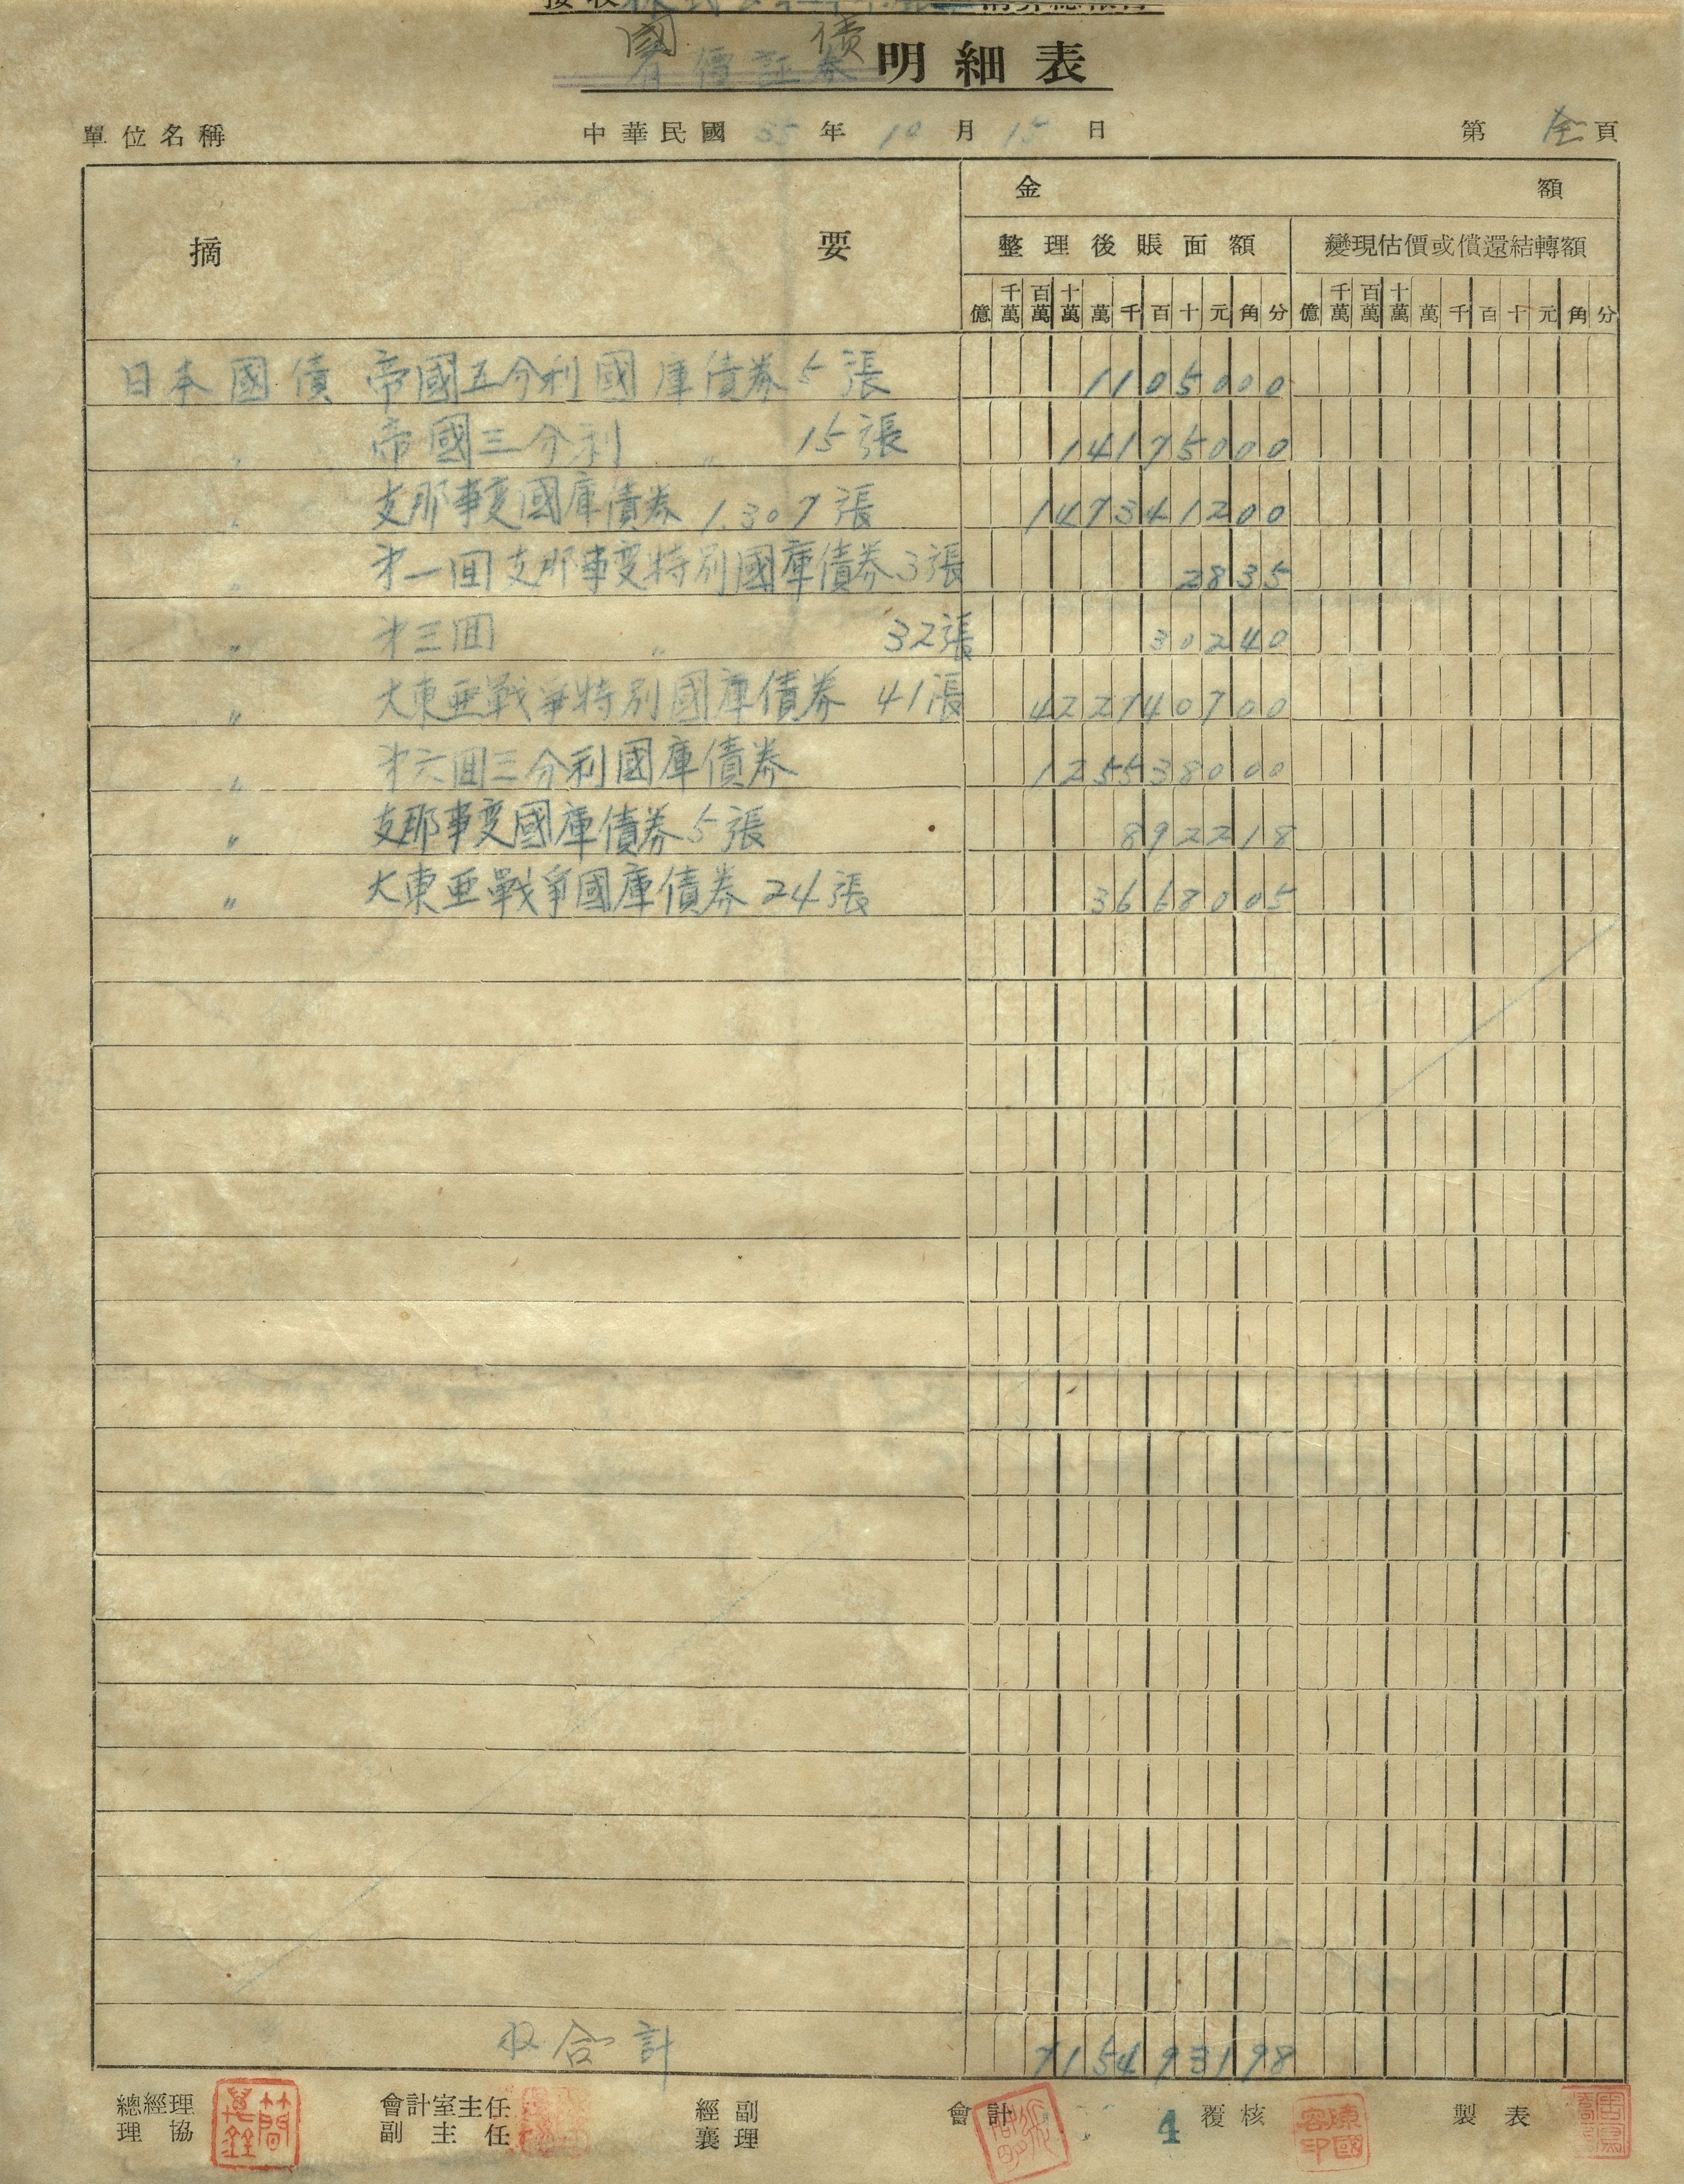 國債
有價証券明細表
單位名稱 中華民國35年10月15日 第全頁
摘要 金額
整理後賬面額 變現估價或償還結轉額
億 千萬 百萬 十萬 萬 千 百 十 元 角 分 億 千萬 百萬 十萬 萬 千 百 十 元 角 分
日本國債 帝國五分利國庫債券5張 1105000
〃 帝國三分利 〃 15張 14175000
〃 支那事変國庫債券 1.307張 147341200
〃 才一回支那事変特別國庫債券3張 2835
〃 才三回 〃 32張 30240
〃 大東亜戦爭特別國庫債券 41張 422740700
〃 才六回三分利國庫債券 125538000
〃 支那事変國庫債券5張 892218
〃 大東亜戦爭國庫債券24張 3668005
合計 715493198
總經理 會計室主任 經副 會計 4 覆核 製表
理協 副主任 襄理